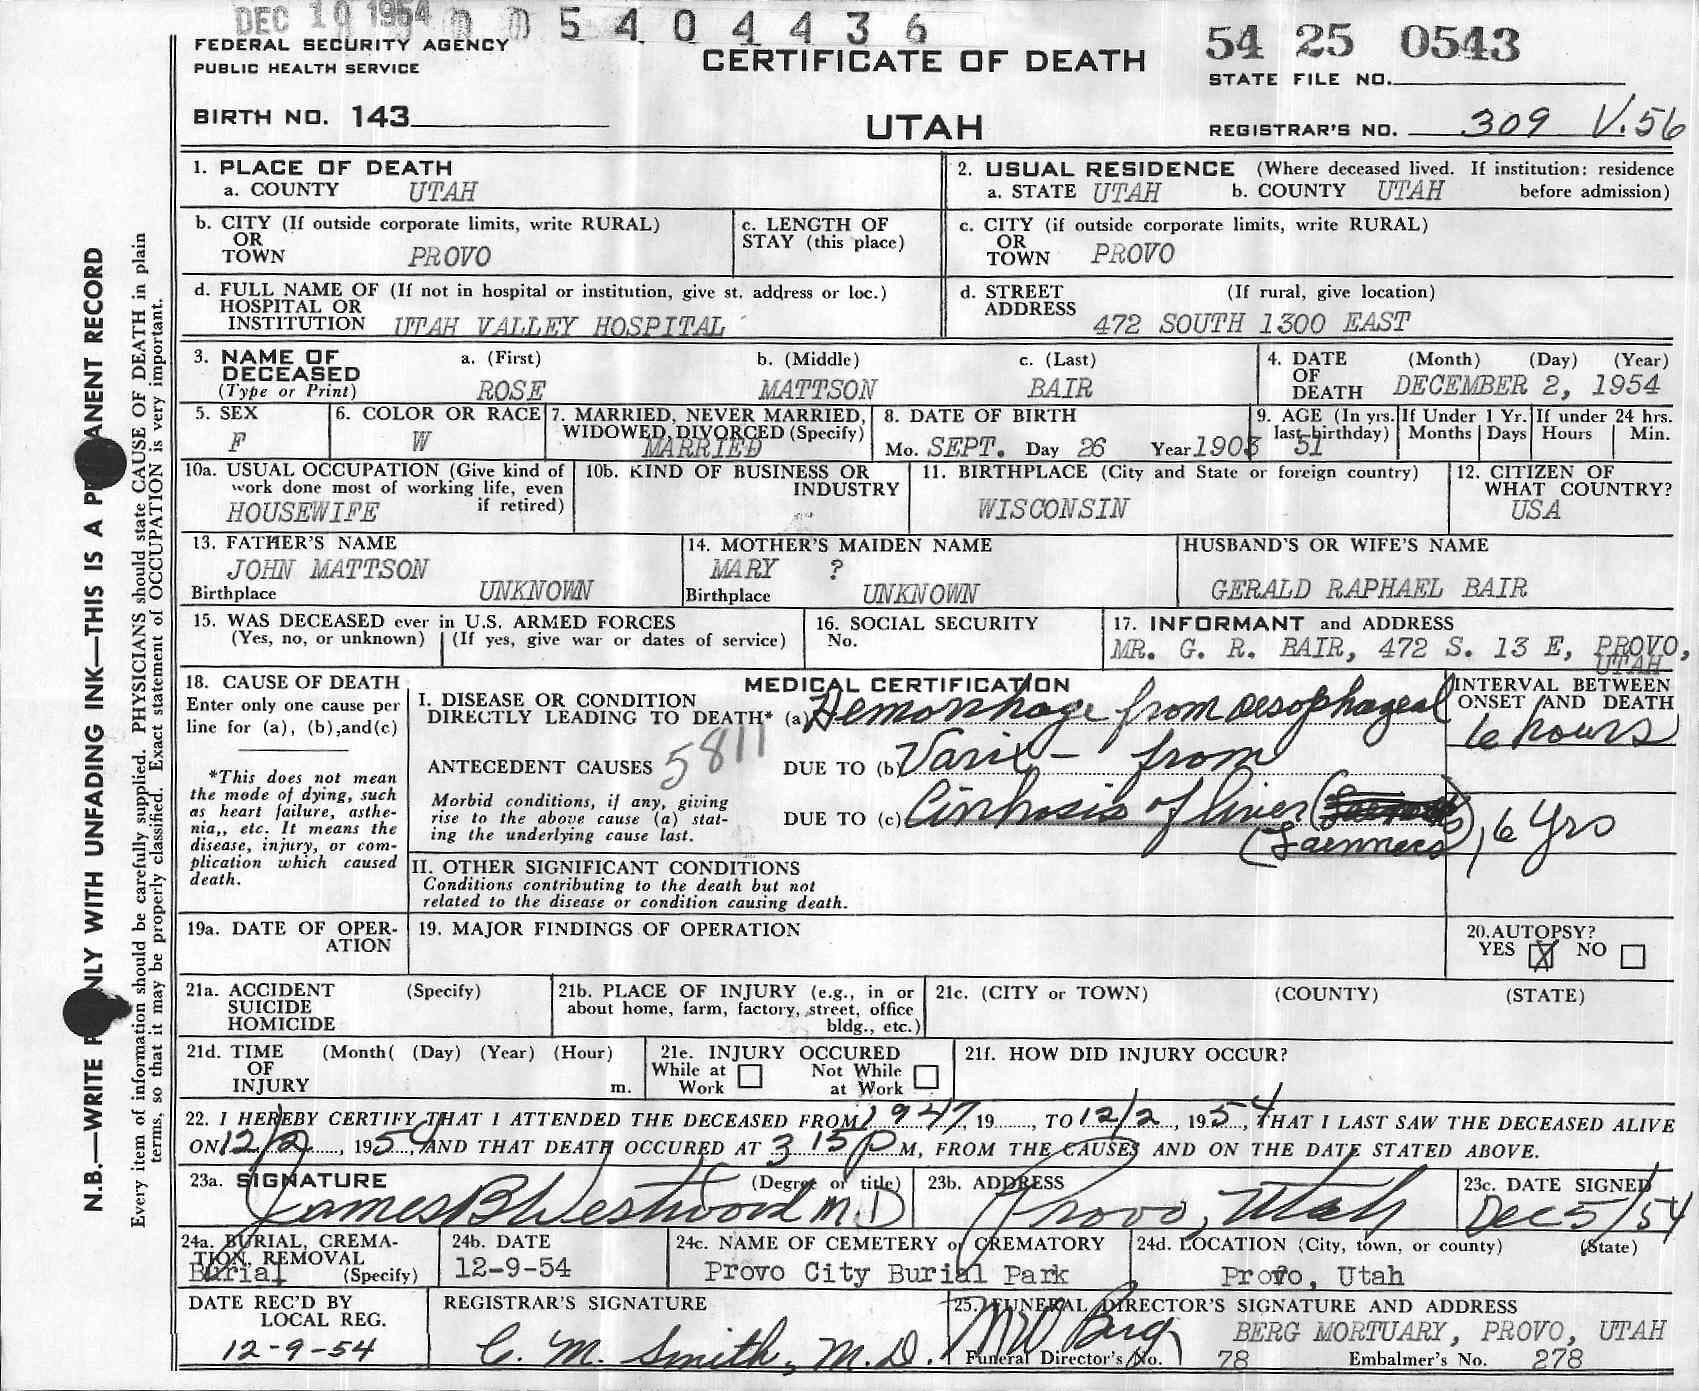 DEC 10 1954
0 0 5 4 0 4 4 3 6
54 25 0543
FEDERAL SECURITY AGENCY
PUBLIC HEALTH SERVICE
CERTIFICATE OF DEATH
STATE FILE NO.
BIRTH NO. 143
UTAH
REGISTRAR'S NO. 309 V.56
1. PLACE OF DEATH
a. COUNTY UTAH
2. USUAL RESIDENCE (Where deceased lived. If institution: residence
a. STATE UTAH b. COUNTY UTAH before admission)
b. CITY (If outside corporate limits, write RURAL)
OR
TOWN PROVO
c. LENGTH OF
STAY (this place)
c. CITY (if outside corporate limits, write RURAL)
OR
TOWN PROVO
d. FULL NAME OF (If not in hospital or institution, give st. address or loc.)
HOSPITAL OR
INSTITUTION UTAH VALLEY HOSPITAL
d. STREET (If rural, give location)
ADDRESS
472 SOUTH 1300 EAST
3. NAME OF
DECEASED
(Type or Print)
a. (First)
ROSE
b. (Middle)
MATTSON
c. (Last)
BAIR
4. DATE (Month) (Day) (Year)
OF
DEATH DECEMBER 2, 1954
5. SEX
F
6. COLOR OR RACE
W
7. MARRIED, NEVER MARRIED,
WIDOWED, DIVORCED (Specify)
MARRIED
8. DATE OF BIRTH
Mo. SEPT. Day 26 Year 1903
9. AGE (In yrs.
last birthday)
51
If Under 1 Yr.
Months Days
If under 24 hrs.
Hours Min.
10a. USUAL OCCUPATION (Give kind of
work done most of working life, even
if retired)
HOUSEWIFE
10b. KIND OF BUSINESS OR
INDUSTRY
11. BIRTHPLACE (City and State or foreign country)
WISCONSIN
12. CITIZEN OF
WHAT COUNTRY?
USA
13. FATHER'S NAME
JOHN MATTSON
Birthplace UNKNOWN
14. MOTHER'S MAIDEN NAME
MARY ?
Birthplace UNKNOWN
HUSBAND'S OR WIFE'S NAME
GERALD RAPHAEL BAIR
15. WAS DECEASED ever in U.S. ARMED FORCES
(Yes, no, or unknown) (If yes, give war or dates of service)
16. SOCIAL SECURITY
No.
17. INFORMANT and ADDRESS
MR. G. R. BAIR, 472 S. 13 E, PROVO,
UTAH
18. CAUSE OF DEATH
Enter only one cause per
line for (a), (b), and (c)
*This does not mean
the mode of dying, such
as heart failure, asthe-
nia,, etc. It means the
disease, injury, or com-
plication which caused
death.
MEDICAL CERTIFICATION
I. DISEASE OR CONDITION
DIRECTLY LEADING TO DEATH* (a) Hemorrhage from oesophageal
5811
ANTECEDENT CAUSES DUE TO (b) Varix - from
Morbid conditions, if any, giving
rise to the above cause (a) stat-
ing the underlying cause last.
DUE TO (c) Cirrhosis of liver
(Laennecs)
INTERVAL BETWEEN
ONSET AND DEATH
6 hours
6 Yrs
II. OTHER SIGNIFICANT CONDITIONS
Conditions contributing to the death but not
related to the disease or condition causing death.
19a. DATE OF OPER-
ATION
19. MAJOR FINDINGS OF OPERATION
20. AUTOPSY?
YES X NO
21a. ACCIDENT (Specify)
SUICIDE
HOMICIDE
21b. PLACE OF INJURY (e.g., in or
about home, farm, factory, street, office
bldg., etc.)
21c. (CITY or TOWN) (COUNTY) (STATE)
21d. TIME (Month( (Day) (Year) (Hour)
OF
INJURY m.
21e. INJURY OCCURED
While at Not While
Work at Work
21f. HOW DID INJURY OCCUR?
22. I HEREBY CERTIFY THAT I ATTENDED THE DECEASED FROM 1947, 19 , TO 12/2, 1954, THAT I LAST SAW THE DECEASED ALIVE
ON 12/2, 1954, AND THAT DEATH OCCURED AT 3 15 P M, FROM THE CAUSES AND ON THE DATE STATED ABOVE.
23a. SIGNATURE (Degree or title)
James B Westwood M.D
23b. ADDRESS
Provo, Utah
23c. DATE SIGNED
Dec 5/54
24a. BURIAL, CREMA-
TION, REMOVAL
Burial (Specify)
24b. DATE
12-9-54
24c. NAME OF CEMETERY or CREMATORY
Provo City Burial Park
24d. LOCATION (City, town, or county) (State)
Provo, Utah
DATE REC'D BY
LOCAL REG.
12-9-54
REGISTRAR'S SIGNATURE
C. M. Smith, M.D.
25. FUNERAL DIRECTOR'S SIGNATURE AND ADDRESS
MW Berg
BERG MORTUARY, PROVO, UTAH
Funeral Director's No. 78 Embalmer's No. 278
N.B.—WRITE ONLY WITH UNFADING INK—THIS IS A PERMANENT RECORD
Every item of information should be carefully supplied. PHYSICIANS should state CAUSE OF DEATH in plain
terms, so that it may be properly classified. Exact statement of OCCUPATION is very important.